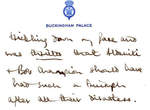 BUCKINGHAM PALACE
down my face and
was that Aldaniti
+ Bob Champion should have
had such a triumph
after all their disasters.